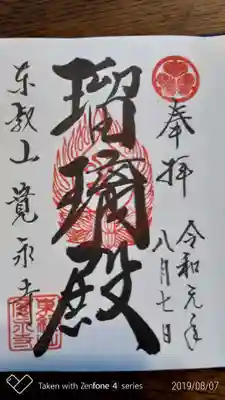 奉拝
令和元年
八月七日
瑠璃殿
东叡山 寛永寺
Taken with Zenfone 4 series
2019/08/07